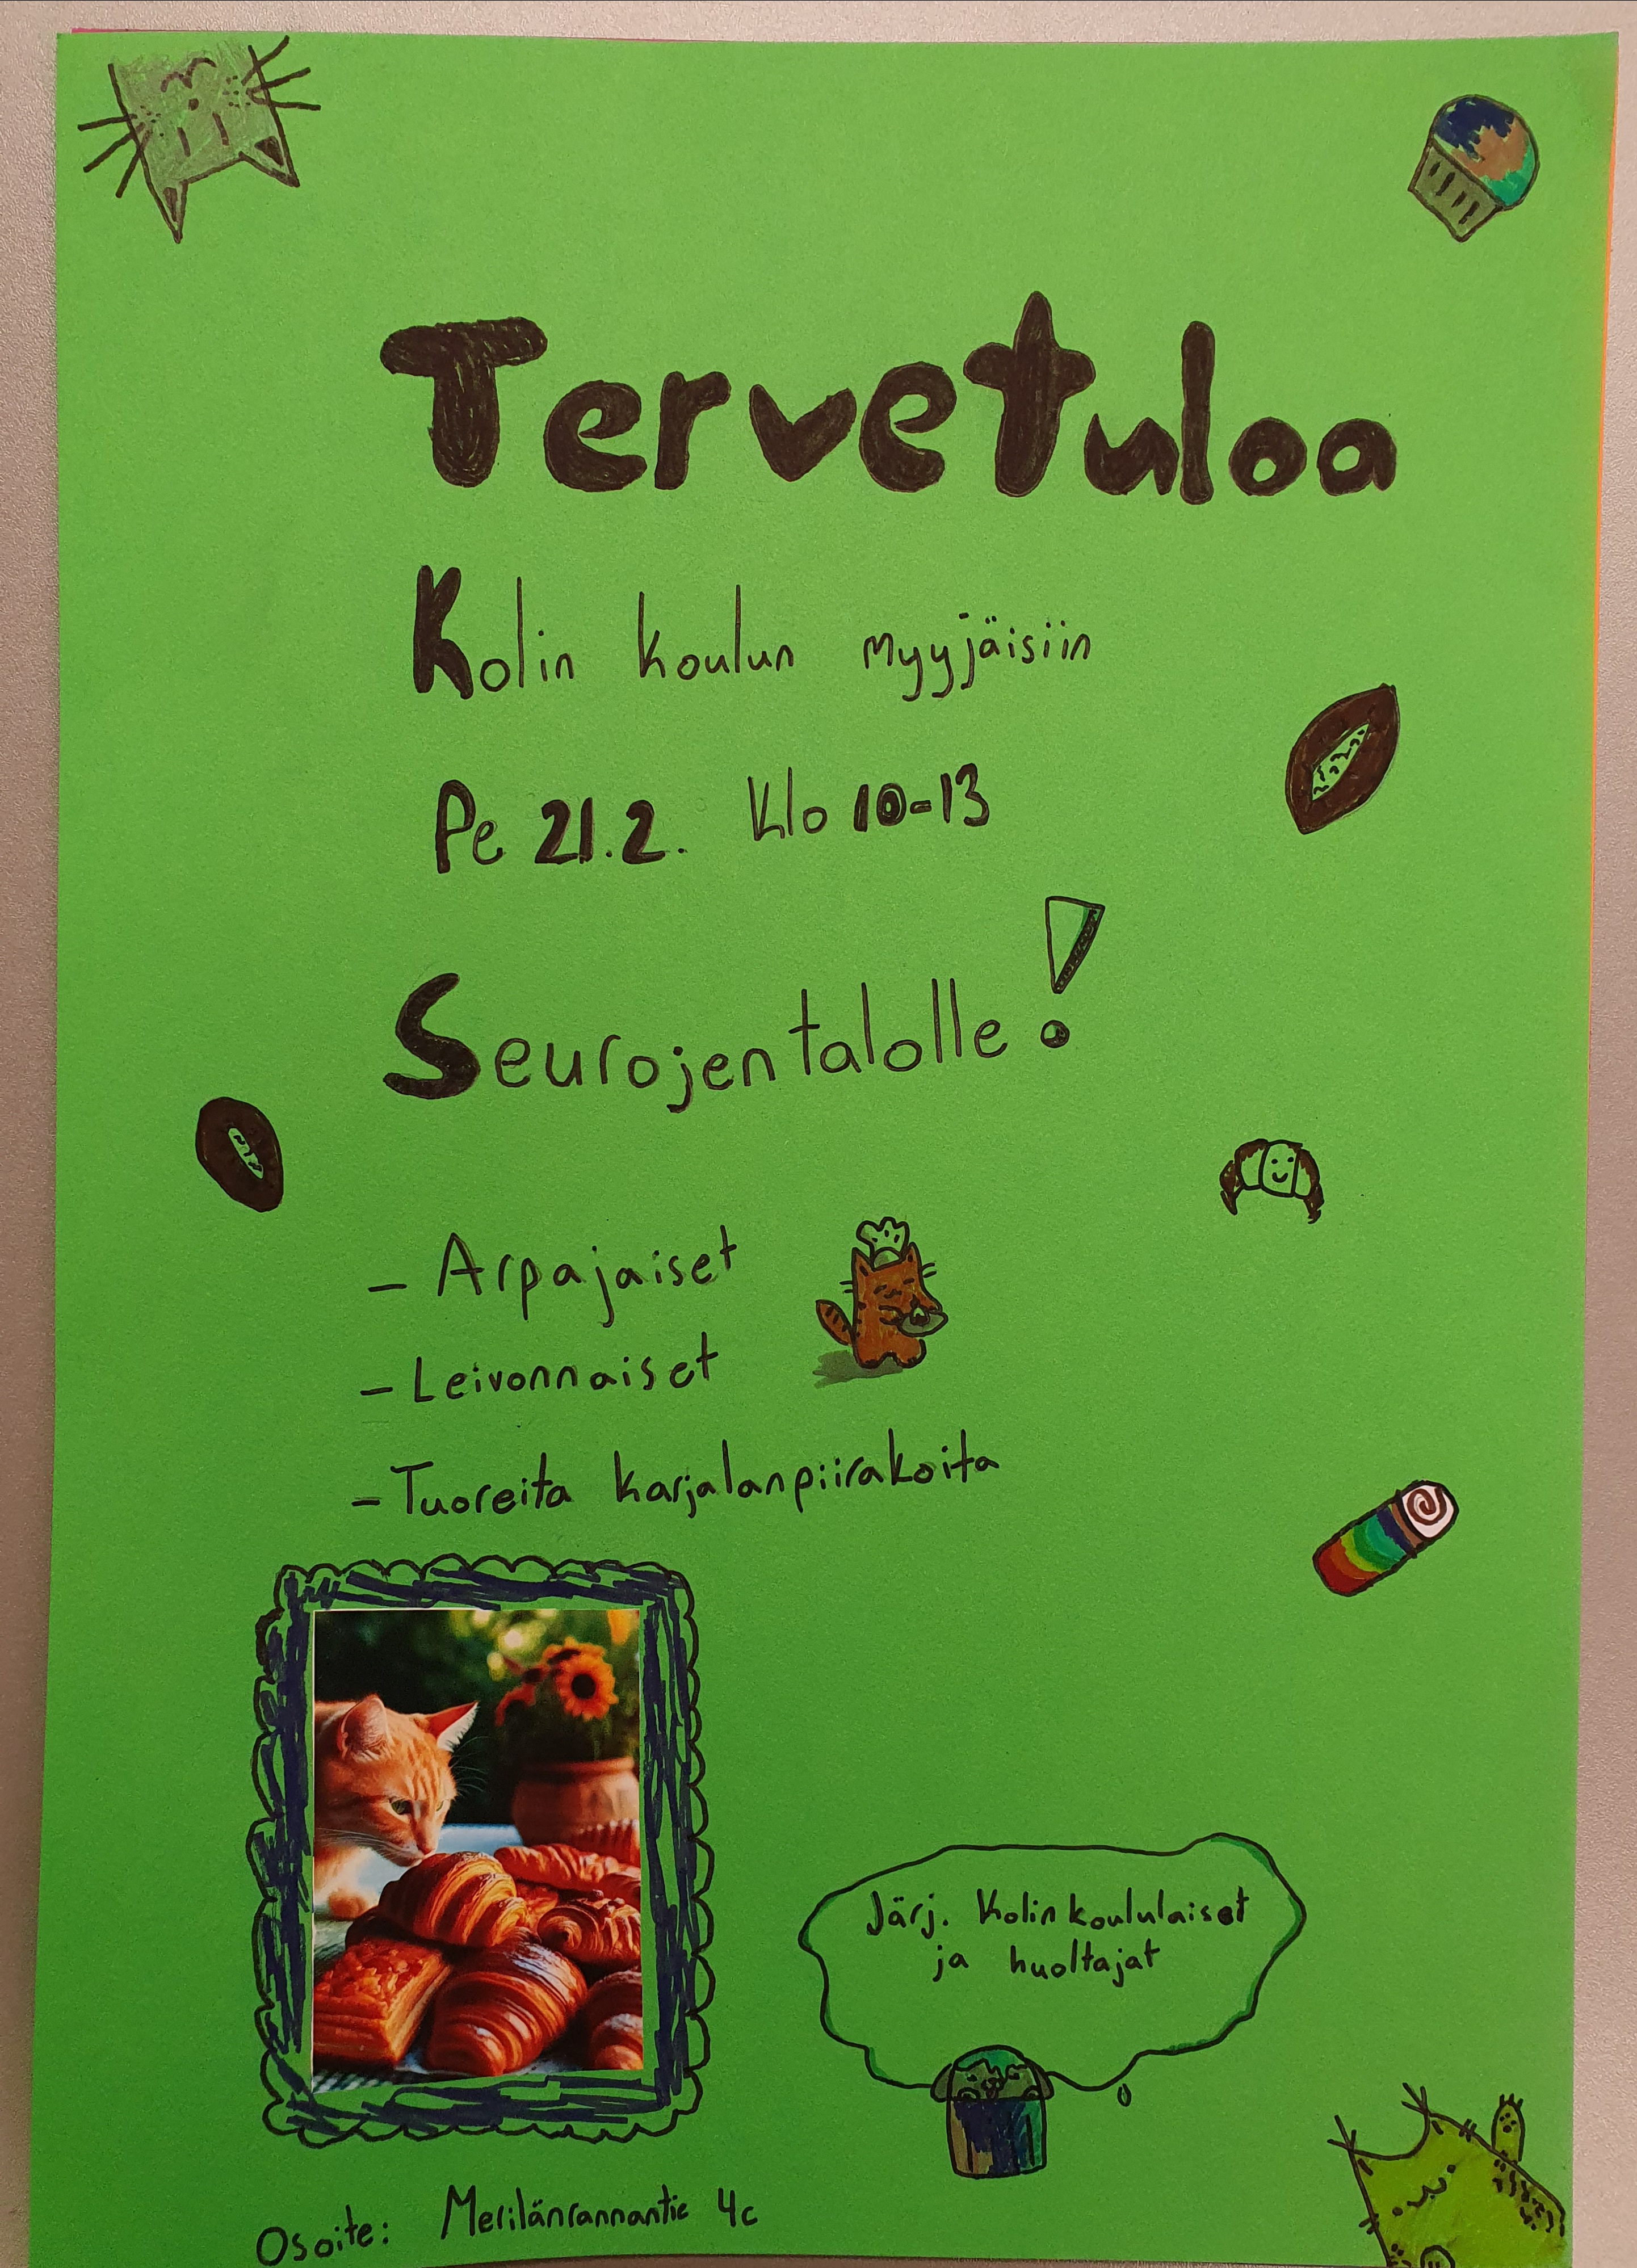 Tervetuloa
Kolin koulun myyjäisiin
Pe 21.2. Klo 10-13
Seurojentalolle!
- Arpajaiset
- Leivonnaiset
- Tuoreita karjalanpiirakoita
Järj. Kolin koululaiset
ja huoltajat
Osoite: Merilänrannantie 4c